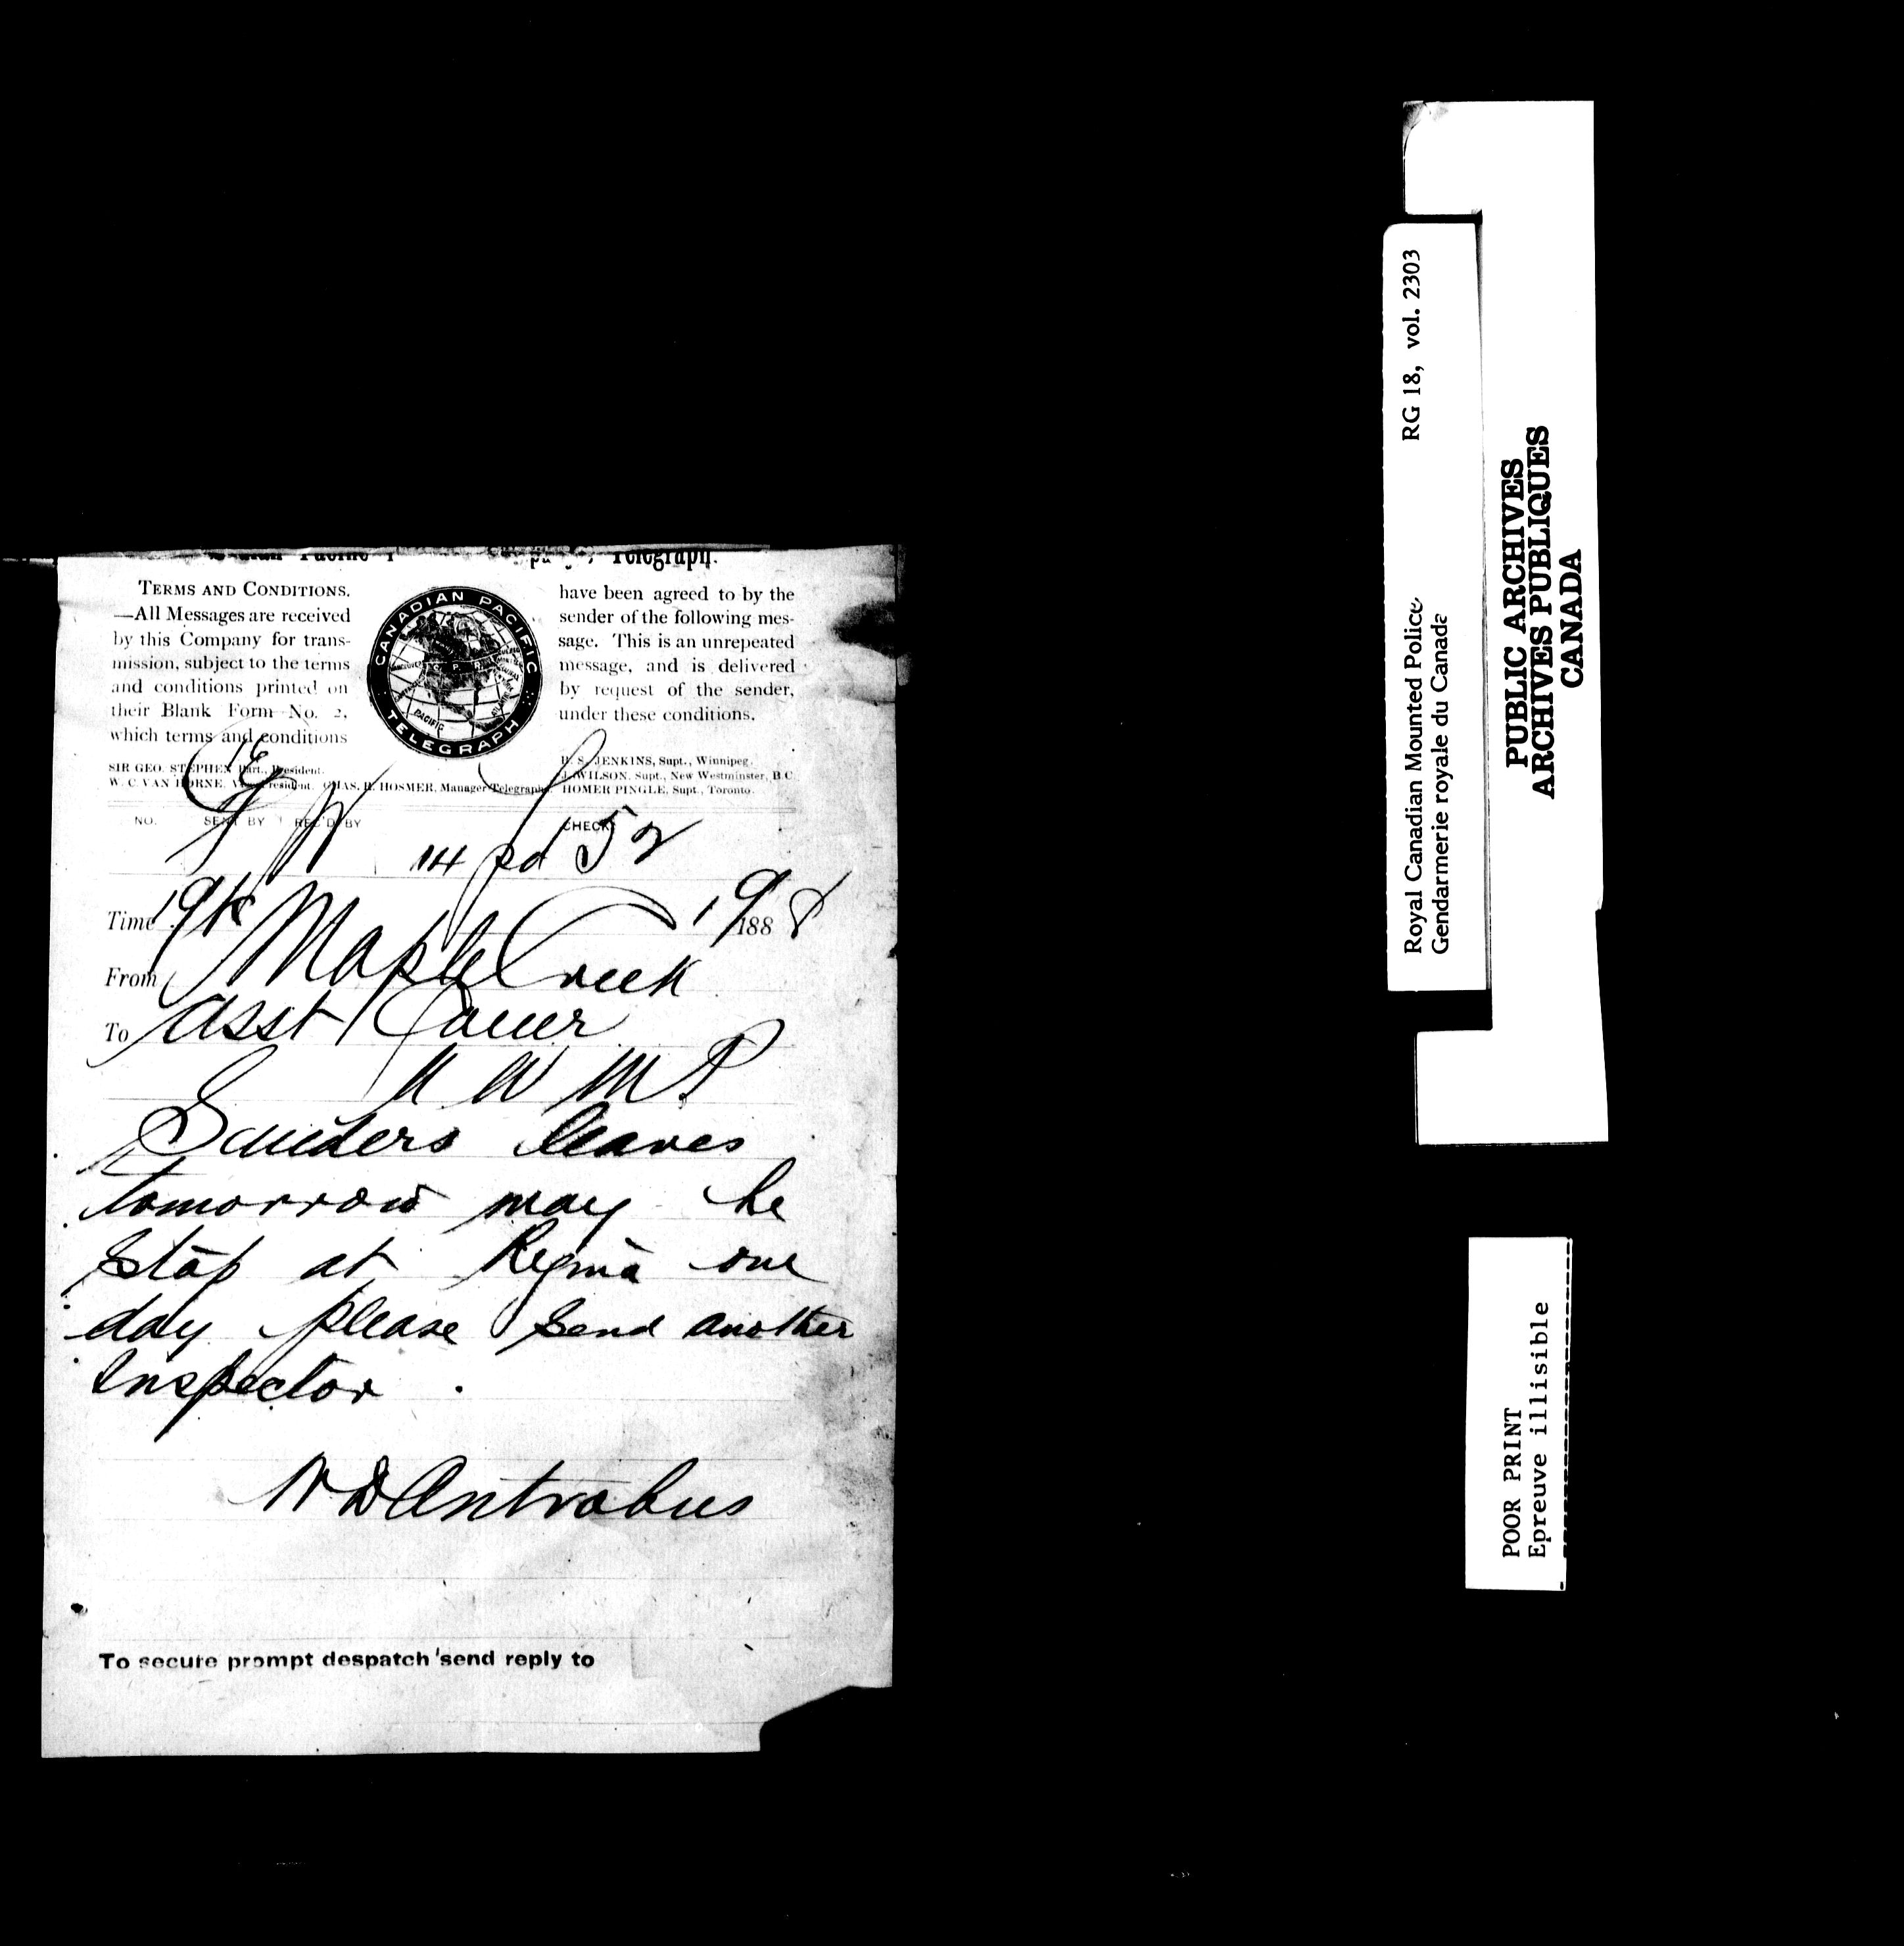 Telegraph.
TERMS AND CONDITIONS.
—All Messages are received
by this Company for trans-
mission, subject to the terms
and conditions printed on
their Blank Form No. 2,
which terms and conditions
have been agreed to by the
sender of the following mes-
sage. This is an unrepeated
message, and is delivered
by request of the sender,
under these conditions.
CANADIAN PACIFIC
TELEGRAPH
SIR GEO. STEPHEN, Bart., President.
W. C. VAN HORNE, Vice President. CHAS. R. HOSMER, Manager Telegraphs.
B. S. JENKINS, Supt., Winnipeg.
J. WILSON, Supt., New Westminster, B.C.
HOMER PINGLE, Supt., Toronto.
NO. SENT BY REC'D BY CHECK
14 pd
Time 19 1888
From Maple Creek
To Asst Comr
N W M P
Saunders leaves
tomorrow may he
stop at Regina one
day please send another
Inspector
W D Antrobus
To secure prompt despatch send reply to
Royal Canadian Mounted Police RG 18, vol. 2303
Gendarmerie royale du Canada
PUBLIC ARCHIVES
ARCHIVES PUBLIQUES
CANADA
POOR PRINT
Epreuve illisible